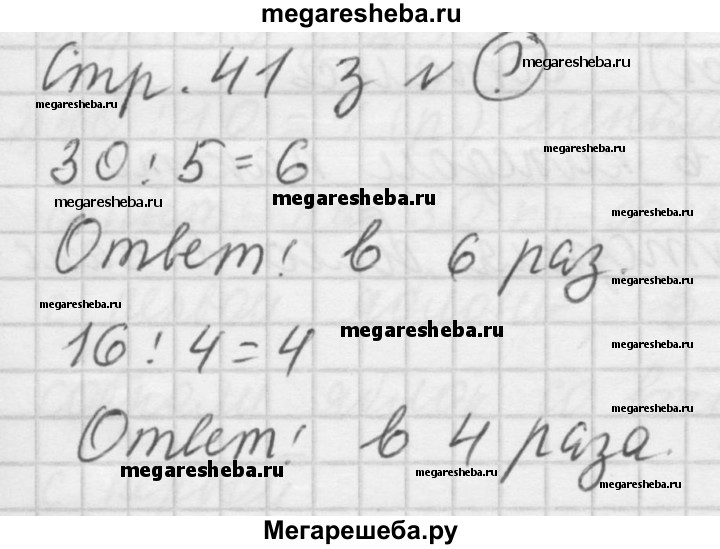 megaresheba.ru
Стр. 41 з № ?
megaresheba.ru
megaresheba.ru
30 : 5 = 6
megaresheba.ru
megaresheba.ru
megaresheba.ru
megaresheba.ru
Ответ: в 6 раз.
megaresheba.ru
megaresheba.ru
megaresheba.ru
16 : 4 = 4
megaresheba.ru
megaresheba.ru
Ответ: в 4 раза.
megaresheba.ru
megaresheba.ru
megaresheba.ru
Мегарешеба.ру